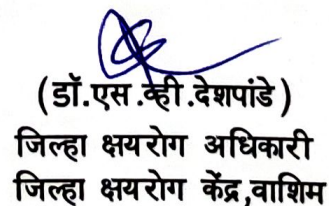 (डॉ.एस.व्ही.देशपांडे)
जिल्हा क्षयरोग अधिकारी
जिल्हा क्षयरोग केंद्र,वाशिम